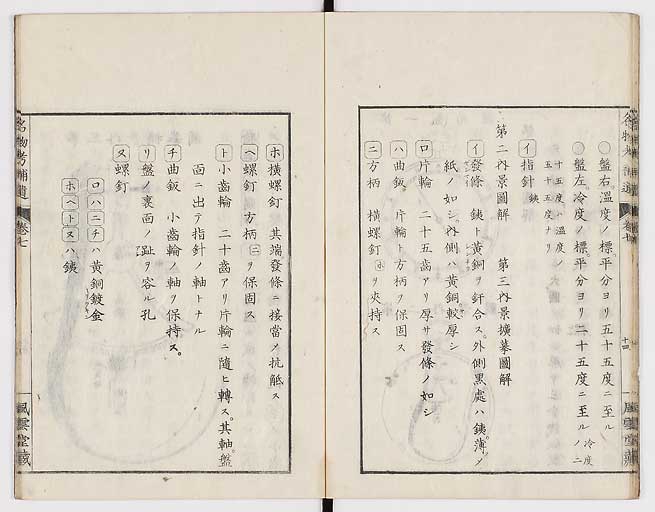 ○盤右溫度ノ標平分ヨリ五十五度ニ至ル
○盤左冷度ノ標平分ヨリ二十五度ニ至ル 冷度ノ二
十五度ハ溫度ノ
五十五度ナリ
イ指針 銕
第二內景圖解 第三內景擴摹圖解
イ發條 銕ト黄銅ヲ釬合ス。外側黒處ハ銕薄メ
紙ノ如シ。內側ハ黄銅較厚シ
ロ片輪 二十五齒アリ厚サ發條ノ如シ
ハ曲鈑 片輪ト方柄ヲ保固ス
ニ方柄 橫螺釘ホヲ夾持ス
名物考補遺 卷七 風雲堂藏
ホ橫螺釘 其端發條ニ接當メ抗觝ス
ヘ螺釘 方柄ニヲ保固ス
ト小齒輪 二十齒アリ片輪ニ隨ヒ轉ス。其軸盤
面ニ出テ指針ノ軸トナル
チ曲鈑 小齒輪ノ軸ヲ保持ス。
リ盤ノ裏面ノ趾ヲ容ル孔
ヌ螺釘
ロハニチハ黄銅鍍金
ホヘトヌハ銕
名物考補遺 卷七 風雲堂藏